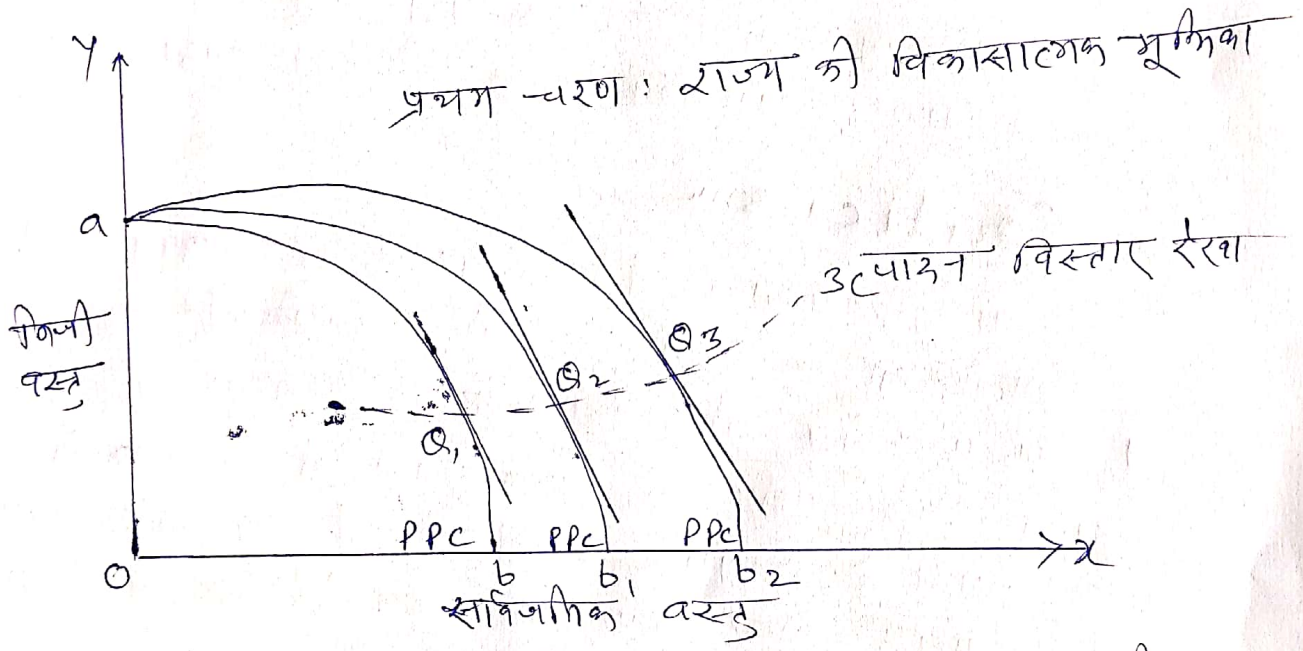 Y
प्रथम चरण: राज्य की विकासात्मक भूमिका
a
उत्पादन विस्तार रेखा
निजी
वस्तु
Q3
Q2
Q1
PPC PPC PPC
O b b1 b2 x
सार्वजनिक वस्तु